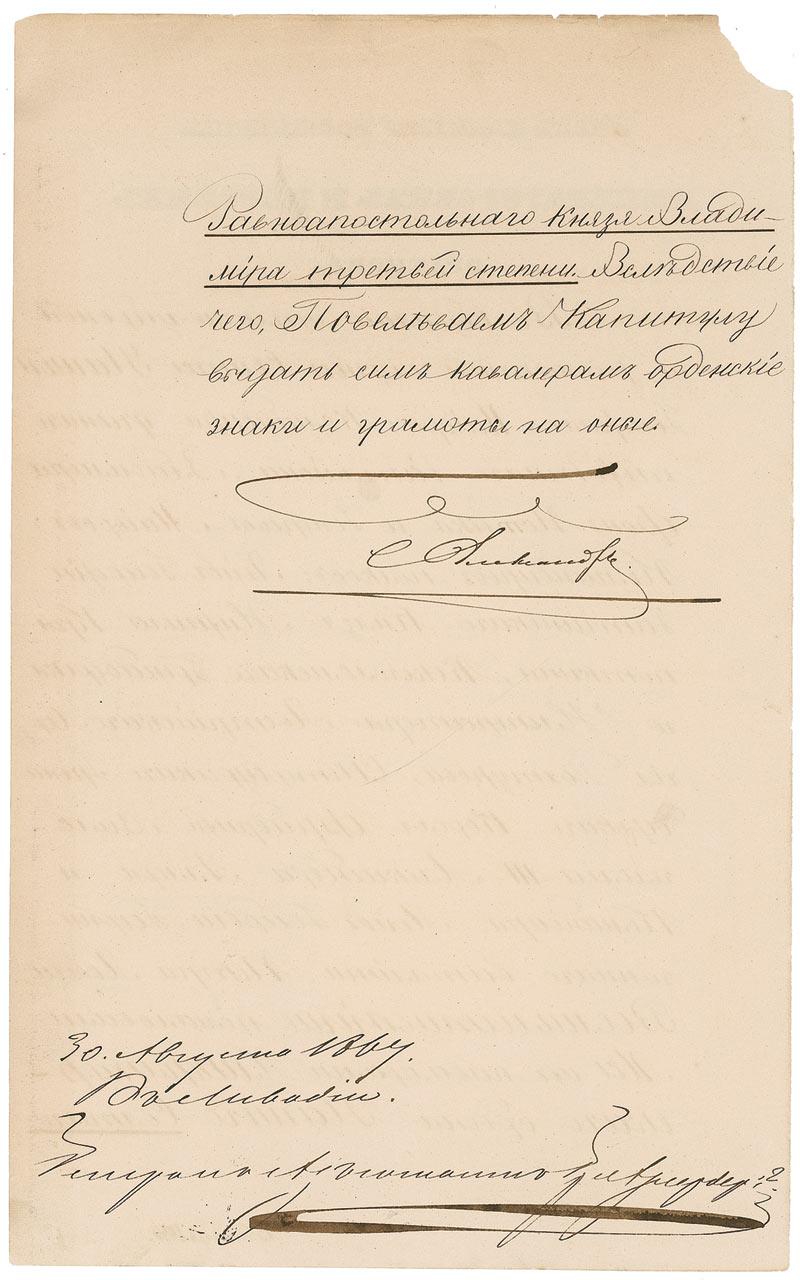 Равноапостольнаго Князя Влади-
міра третьей степени. Вслѣдствіе
чего, Повелѣваемъ Капитулу
выдать симъ кавалерамъ орденскіе
знаки и грамоты на оные.
Александръ.
30. Августа 1867.
Въ Ливадіи.
Генералъ Адъютантъ Гр. Адлербергъ 2